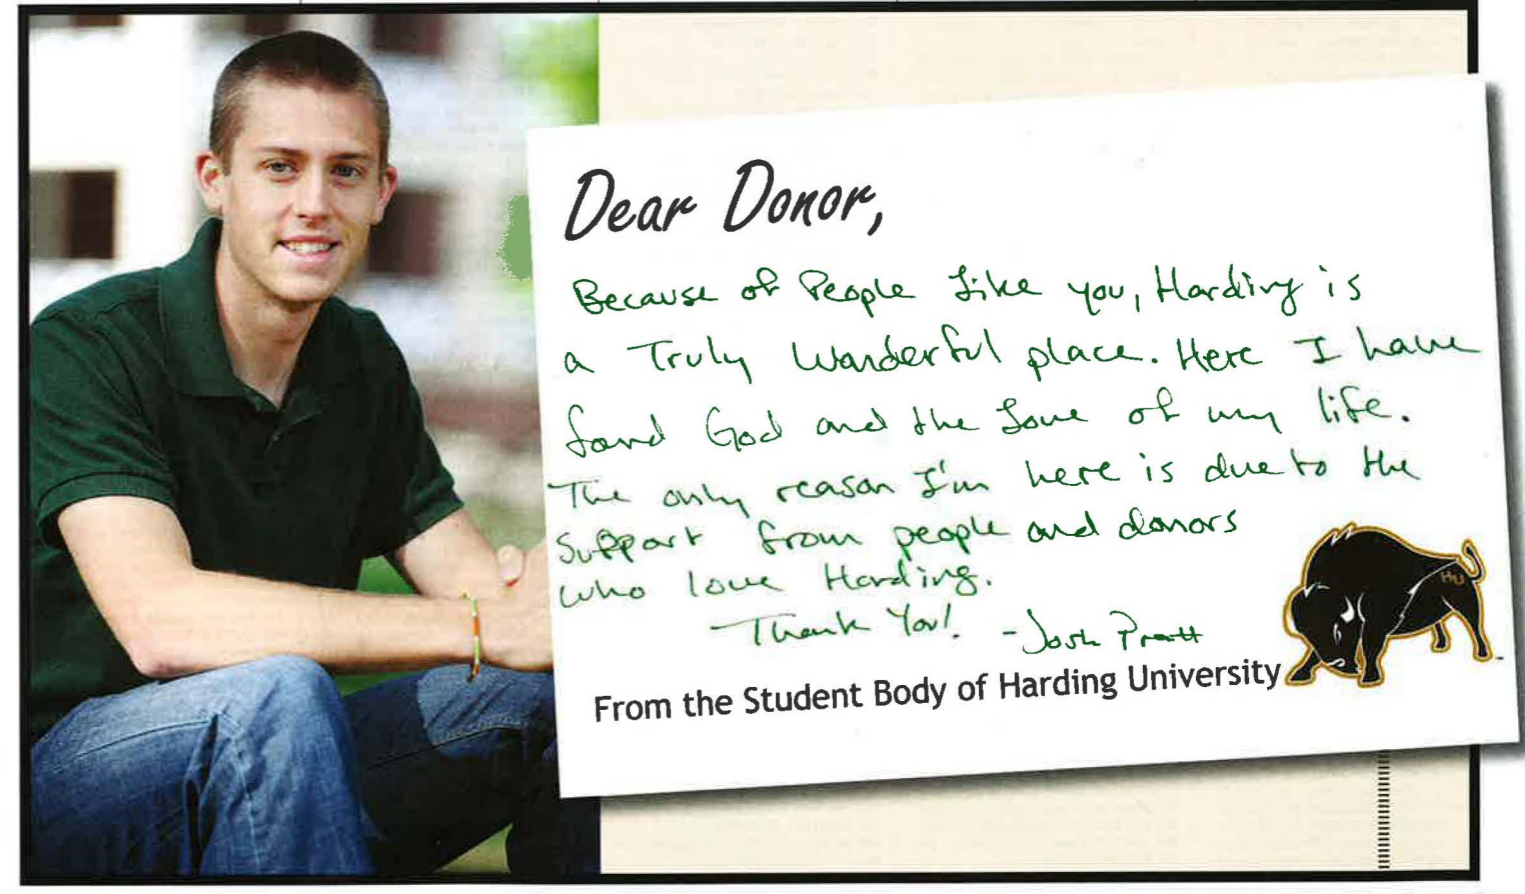 Dear Donor,
Because of People Like you, Harding is
a Truly Wonderful place. Here I have
found God and the Love of my life.
The only reason I'm here is due to the
Support from people and donors
who love Harding.
Thank You! -Josh Pratt
From the Student Body of Harding University
HU